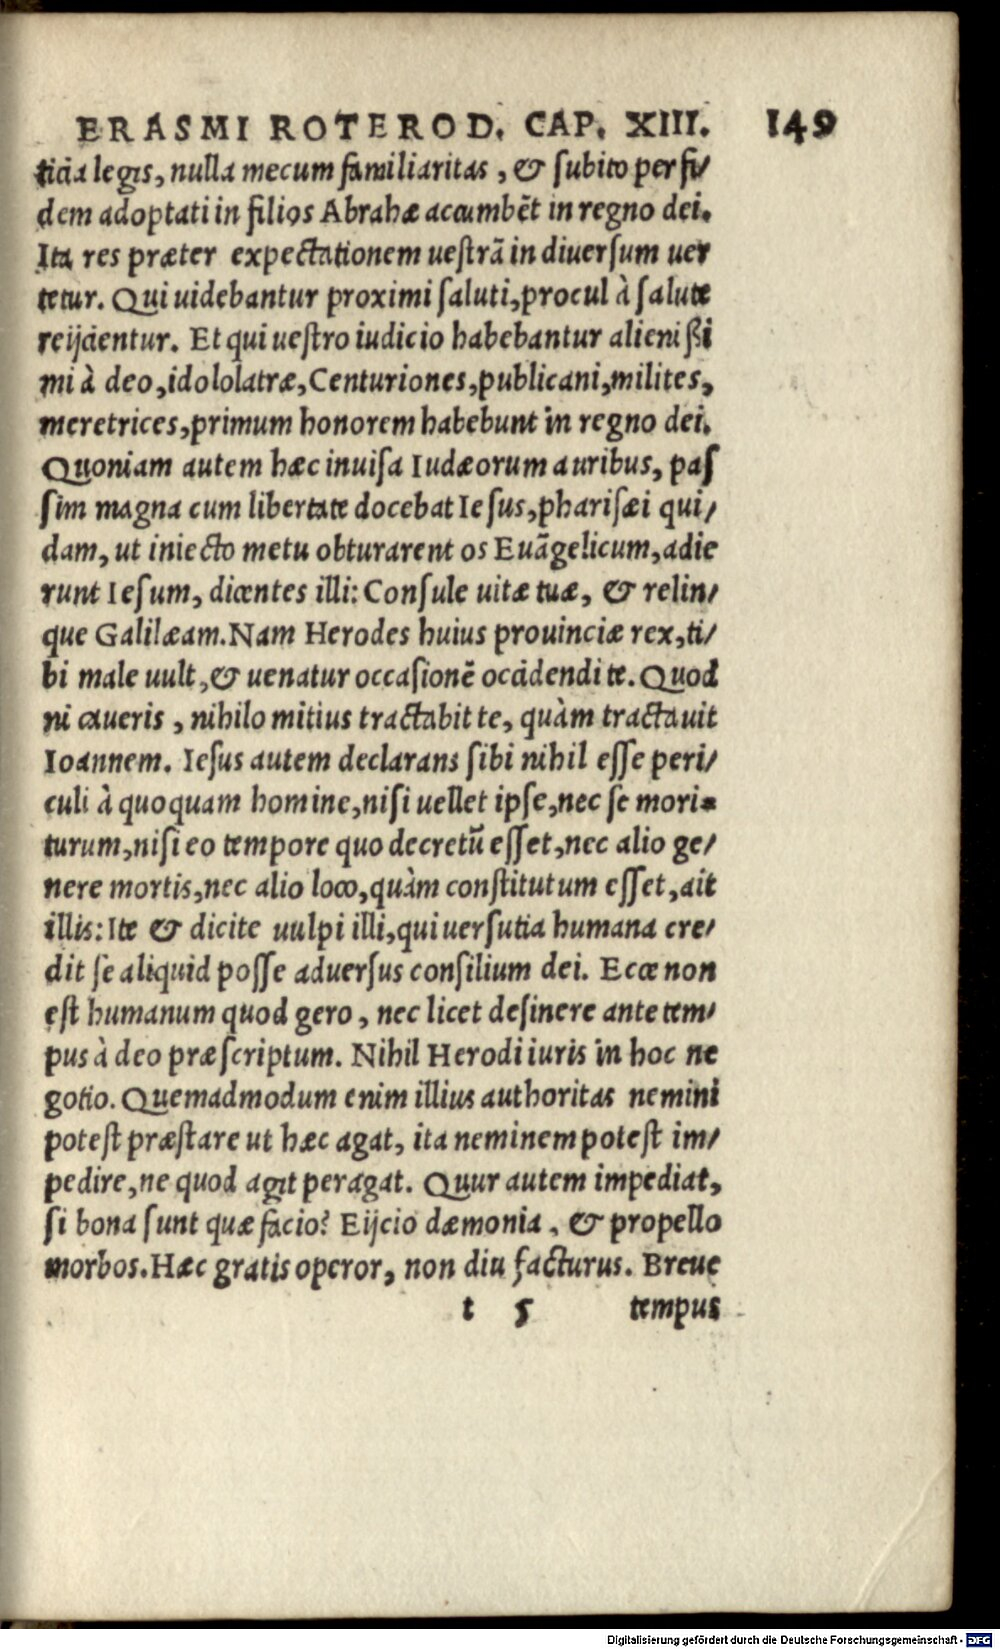 ERASMI ROTEROD. CAP. XIII. 149
ticia legis, nulla mecum familiaritas, & subito per fi/
dem adoptati in filios Abrahæ accumbēt in regno dei.
Ita res præter expectationem uestrā in diuersum uer
tetur. Qui uidebantur proximi saluti, procul à salute
reijcientur. Et qui uestro iudicio habebantur alienißi
mi à deo, idololatræ, Centuriones, publicani, milites,
meretrices, primum honorem habebunt in regno dei.
Quoniam autem hæc inuisa Iudæorum auribus, pas
sim magna cum libertate docebat Iesus, pharisæi qui/
dam, ut iniecto metu obturarent os Euāgelicum, adie
runt Iesum, dicentes illi: Consule uitæ tuæ, & relin/
que Galilæam. Nam Herodes huius prouinciæ rex, ti/
bi male uult, & uenatur occasionē occidendi te. Quod
ni caueris, nihilo mitius tractabit te, quàm tractauit
Ioannem. Iesus autem declarans sibi nihil esse peri/
culi à quoquam homine, nisi uellet ipse, nec se mori=
turum, nisi eo tempore quo decretū esset, nec alio ge/
nere mortis, nec alio loco, quàm constitutum esset, ait
illis: Ite & dicite uulpi illi, qui uersutia humana cre/
dit se aliquid posse aduersus consilium dei. Ecce non
est humanum quod gero, nec licet desinere ante tem/
pus à deo præscriptum. Nihil Herodi iuris in hoc ne
gotio. Quemadmodum enim illius authoritas nemini
potest præstare ut hæc agat, ita neminem potest im/
pedire, ne quod agit peragat. Quur autem impediat,
si bona sunt quæ facio? Eijcio dæmonia, & propello
morbos. Hæc gratis operor, non diu facturus. Breue
t 5 tempus
Digitalisierung gefördert durch die Deutsche Forschungsgemeinschaft - DFG